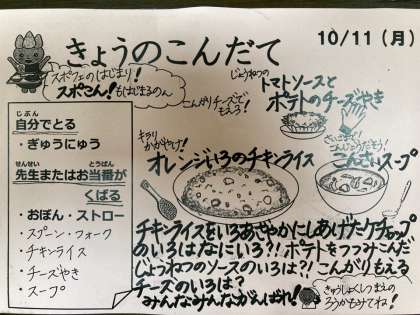 きょうのこんだて
10/11（月）
スポフェのはじまり！
スポこん！もはじまるのん
じょうねつの
トマトソースと
ポテトのチーズやき
こんがりチーズで
もえろ！
じぶん
自分でとる
・ぎゅうにゅう
せんせい とうばん
先生またはお当番が
くばる
・おぼん・ストロー
・スプーン・フォーク
・チキンライス
・チーズやき
・スープ
キラリ
かがやけ！
オレンジいろのチキンライス
さいごまで！
こんさいスープ
チキンライスをいろあざやかにしあげたケチャップ
のいろはなにいろ？！ポテトをつつみこんだ
じょうねつのソースのいろは？！こんがりもえる
チーズのいろは？
みんなみんながんばれ！
きゅうしょくしつまえの
ろうかもみてね！